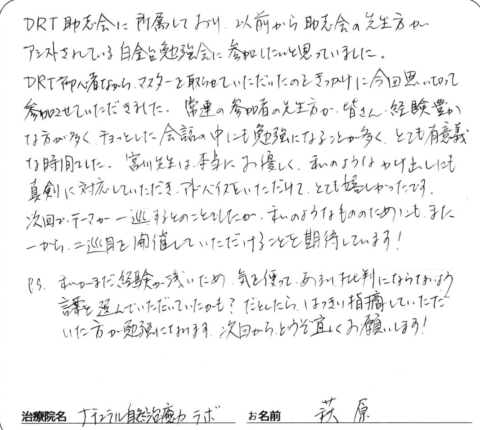 DRT 助志会に所属しており、以前から助志会の先生方が
アシストされている白金台勉強会に参加したいと思っていました。
DRT初心者ながら、マスターを取らせていただいたのときっかけに今回思い切って
参加させていただきました。常連の参加者の先生方が、皆さん、経験豊か
な方が多く、チョっとした会話の中にも勉強になることが多く、とても有意義
な時間でした。宮川先生は本当にお優しく、私のようなかけ出しにも
真剣に対応していただき、アドバイスをいただけて、とても嬉しかったです。
次回で、テーマが一巡するとのことでしたが、私のようなもののためにも、また
一から、二巡目を開催していただけることを期待しています！
P.S. 私がまだ経験が浅いため、気を使って、あまり批判にならないよう
言葉を選んでいただいていたかも？だとしたら、はっきり指摘していただ
いた方が勉強になります。次回から、どうぞ宜しくお願いします！
治療院名 ナチュラル自然治癒力ラボ お名前 萩原